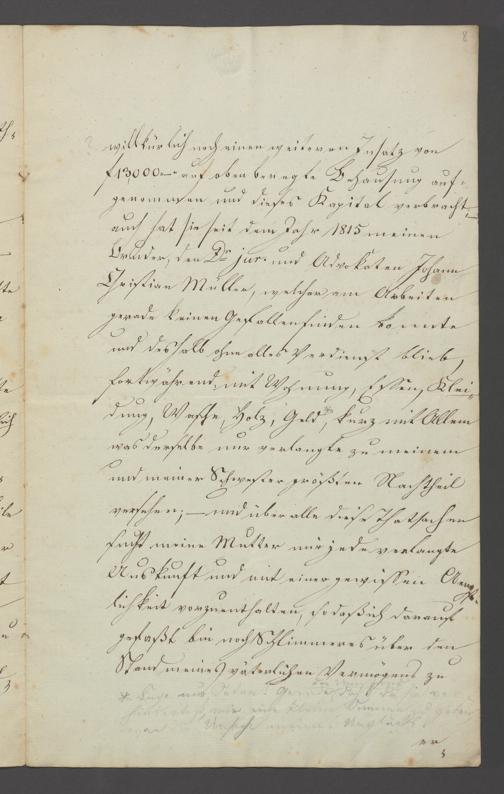 8
willkürlich noch einen weiteren Insatz von
f 13,000 — auf oben benegte Behausung auf-
genommen und dieses Kapital verbracht, —
auch hat sie seit dem Jahr 1815 meinen
Bruder, den Dr. jur. und Advokaten Johann
Christian Müller, welcher am Arbeiten
gerade keinen Gefallen finden konnte
und deshalb ohne alles Verdienst blieb,
fortwährend mit Wohnung, Essen, Klei-
dung, Wasche, Holz, Geld, kurz mit Allem
was derselbe nur verlangte zu meinem
und meiner Schwester größten Nachtheil
versehen; — und über alle diese Thatsachen
sucht meine Mutter mir jede verlangte
Auskunft und mit einer gewissen Aengst-
lichkeit vorzuenthalten, sodaß ich darauf
gefaßt bin noch Schlimmeres über den
Stand meines väterlichen Vermögens zu
er